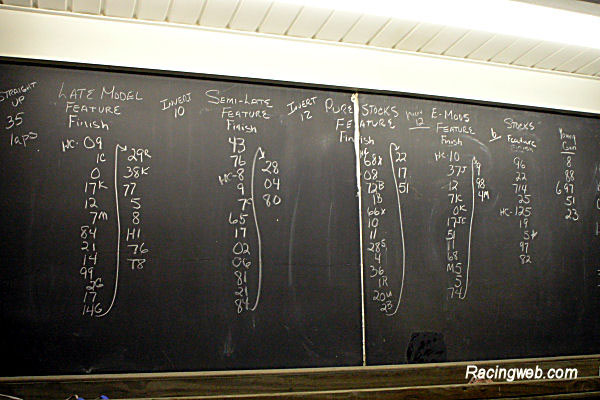 STRAIGHT
UP
35
laps
LATE MODEL
FEATURE
Finish
HC- 09
1C
0
17K
12
7M
84
21
14
99
2G
17
14G
29R
38K
77
5
8
H1
76
T8
INVERT
10
SEMI-LATE
FEATURE
Finish
43
76
HC-8
9
7C
65
17
02
06
81
21
84
28
04
80
INVERT
12
PURE STOCKS
FEATURE
Finish
68X
08
72B
1B
66X
10
11
28S
4
36
1R
20U
23
22
17
51
12
E-MODS
FEATURE
Finish
HC-10
37J
12
7K
0K
17JC
51
11
68
M5
5
74
9
98
4M
STOCKS
Feature
Finish
96
22
714
25
HC-125
19
5
97
82
Young
Gun
8
88
697
51
23
Racingweb.com